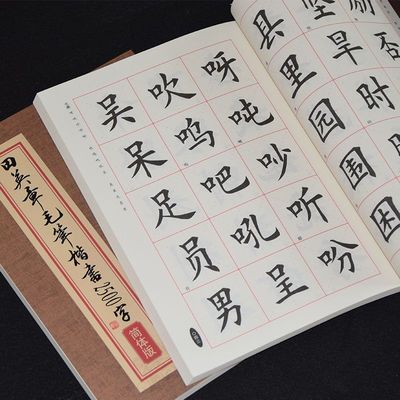 田英章毛筆楷書2500字
简体版
吴 吹 呀
呆 呜 吨
足 吧 吵
员 吼 听
男 呈 吩
县 坚
里 旱 否
园 时
围
困